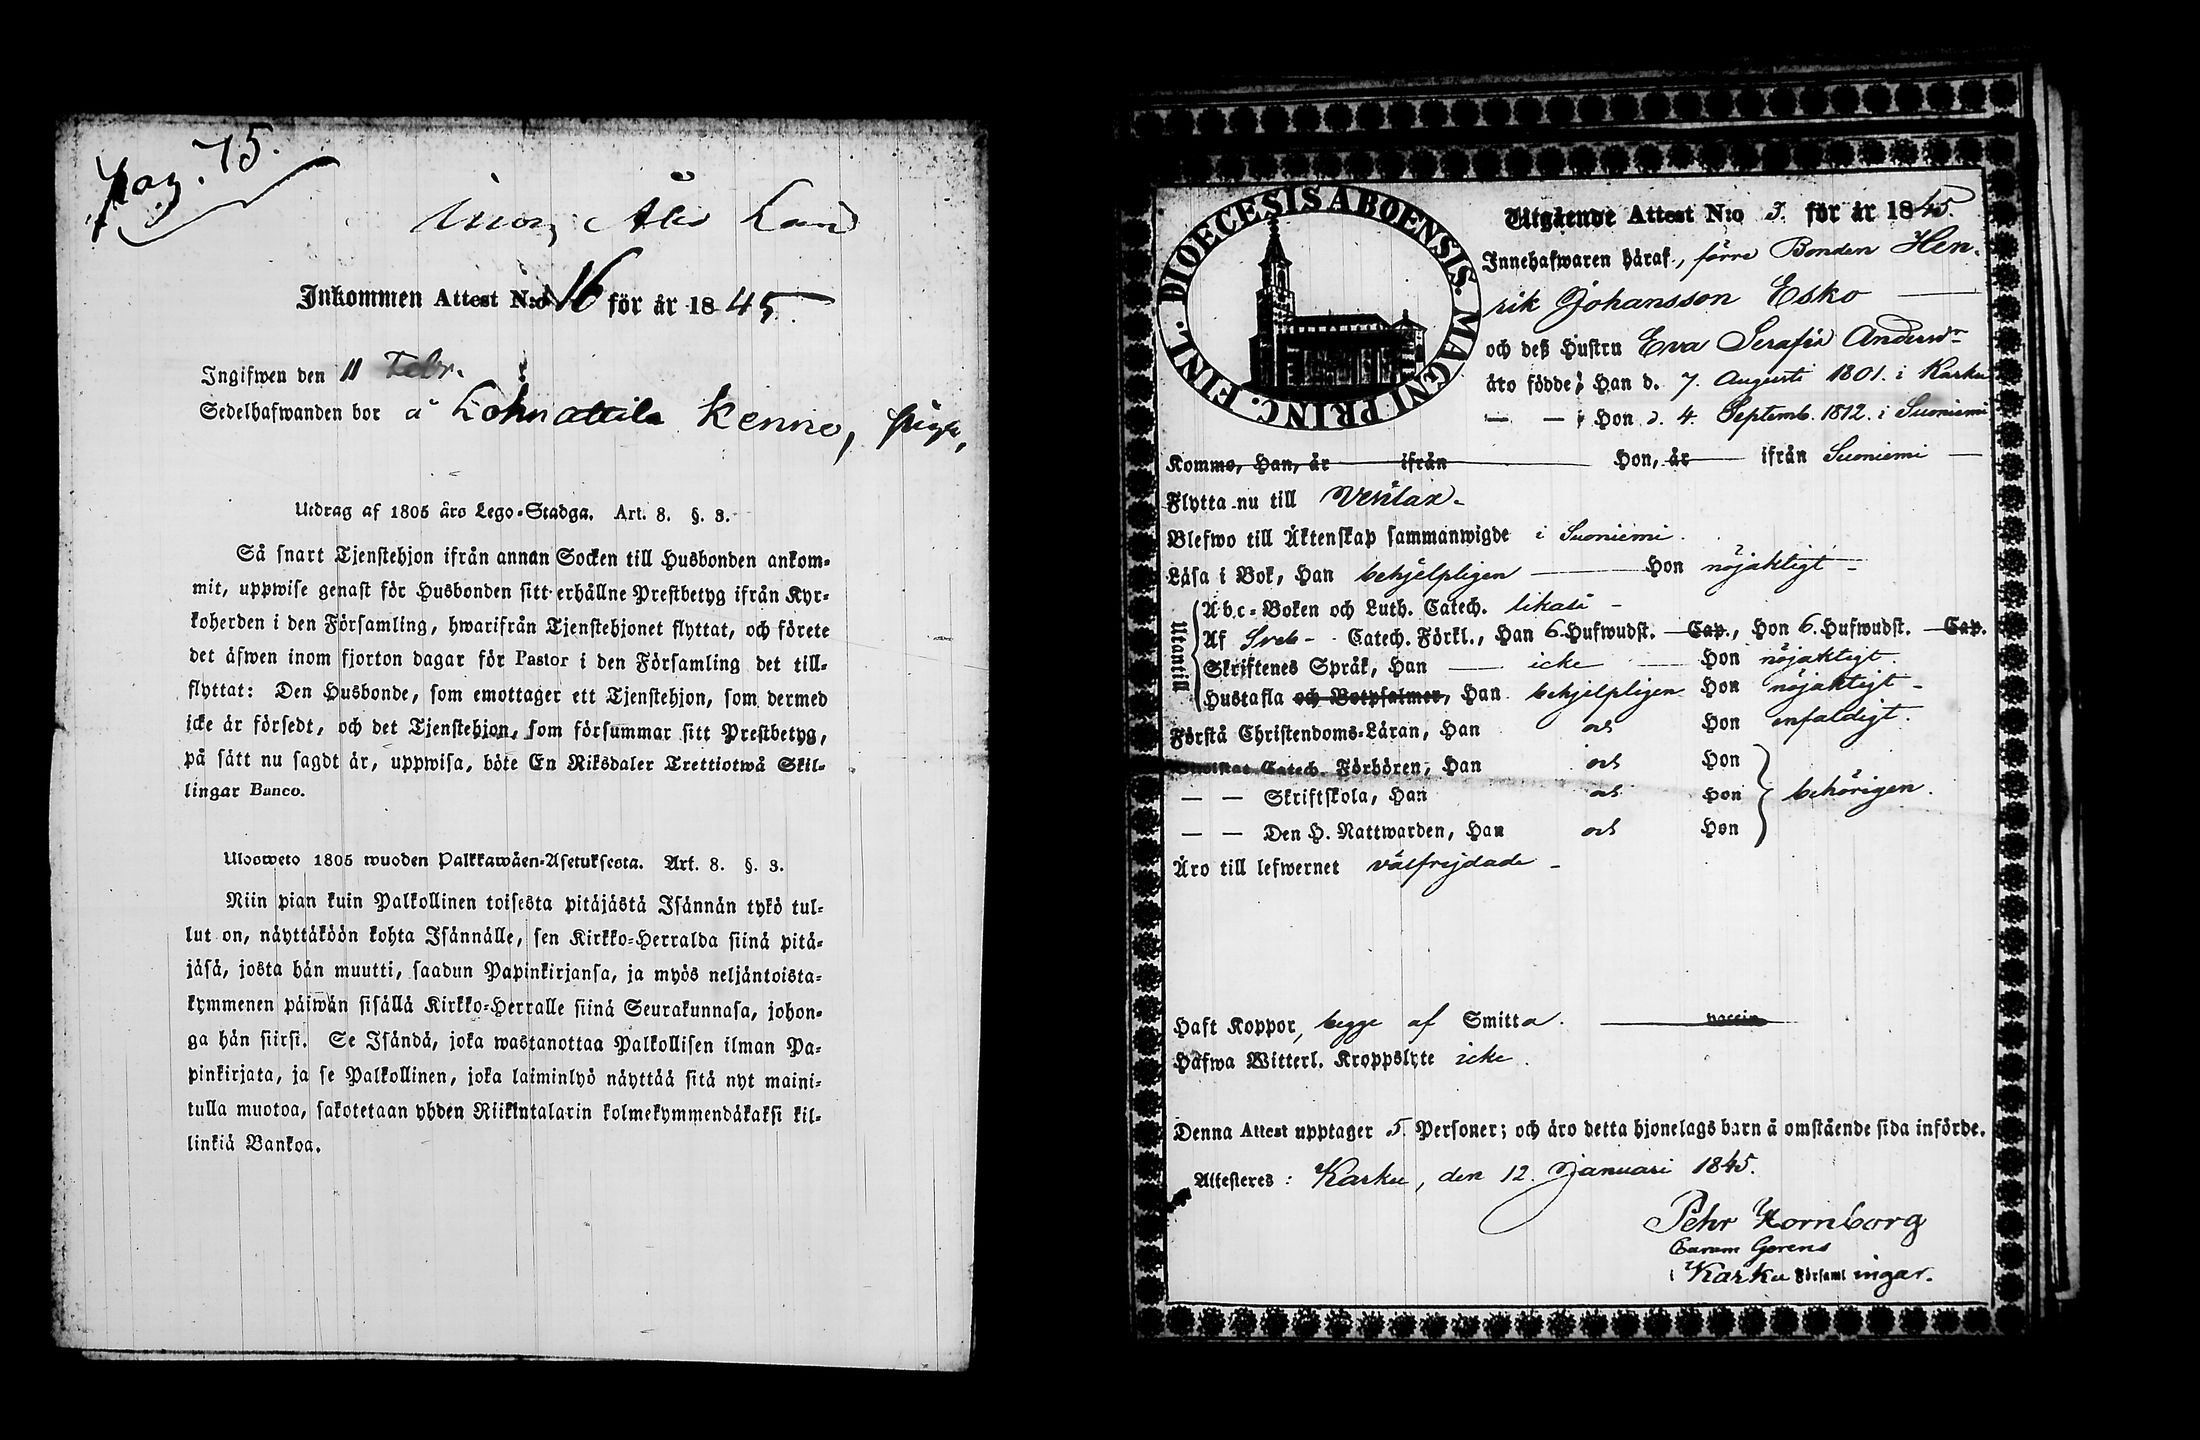 pag. 75.
Inkommen Attest N:o 16 för år 1845.
Ingifwen den 11 Febr.
Sedelhafwanden bor å
Utdrag af 1805 års Lego-Stadga. Art. 8. §. 3.
Så snart Tjenstehjon ifrån annan Socken till Husbonden ankom-
mit, uppwise genast för Husbonden sitt erhållne Prestbetyg ifrån Kyr-
koherden i den Församling, hwarifrån Tjenstehjonet flyttat, och förete
det äfwen inom fjorton dagar för Pastor i den Församling det till-
flyttat: Den Husbonde, som emottager ett Tjenstehjon, som dermed
icke är försedt, och det Tjenstehjon, som försummar sitt Prestbetyg,
på sätt nu sagdt är, uppwisa, böte En Riksdaler Trettiotwå Skil-
lingar Banco.
Ulosweto 1805 wuoden Palkkawäen-Asetuksesta. Art. 8. §. 3.
Niin pian kuin Palkollinen toisesta pitäjästä Isännän tykö tul-
lut on, näyttäköön kohta Isännälle, sen Kirkko-Herralda siinä pitä-
jäsä, josta hän muutti, saadun Papinkirjansa, ja myös neljäntoista-
kymmenen päiwän sisällä Kirkko-Herralle siinä Seurakunnasa, johon-
ga hän siirsi. Se Isändä, joka wastanottaa Palkollisen ilman Pa-
pinkirjata, ja se Palkollinen, joka laiminlyö näyttää sitä nyt maini-
tulla muotoa, sakotetaan yhden Riikintalarin kolmekymmendäkaksi kil-
linkiä Bankoa.
DIOECESIS ABOENSIS. MAGNI PRINC. FINL.
Utgående Attest N:o 3. för år 1845.
Innehafwaren häraf, förre Bonden Hen-
rik Johansson Esko
och deß Hustru Eva Serafia Andersdr
äro födde; Han d. 7. Augusti 1801. i Karku
— — Hon d. 4. Septemb. 1812. i Suoniemi
Kommo, Han, år ifrån Hon, år ifrån Suoniemi
Flytta nu till Vesilax.
Blefwo till Äktenskap sammanwigde i Suoniemi.
Läsa i Bok, Han behjelpligen Hon nöjaktigt
Utantill
Abc-Boken och Luth. Catech. likaså
Af Sveb- Catech. Förkl., Han 6 Hufwudst. Cap., Hon 6. Hufwudst. Cap.
Skriftenes Språk, Han icke Hon nöjaktigt.
Hustafla och Botpsalmer, Han behjelpligen Hon nöjaktigt
Förstå Christendoms-Läran, Han och Hon enfaldigt.
Catech. Förhören, Han och Hon
— — Skriftskola, Han och Hon behörigen.
— — Den H. Nattwarden, Han och Hon
Äro till lefwernet välfrejdade
Haft Koppor, begge af Smitta. vaccin
Hafwa Witterl. Kroppslyte icke.
Denna Attest upptager 5. Personer; och äro detta hjonelags barn å omstående sida införde.
Attesteres: Karku, den 12. Januari 1845.
Pehr Hornborg
Earum Gerens
i Karku Församlingar.